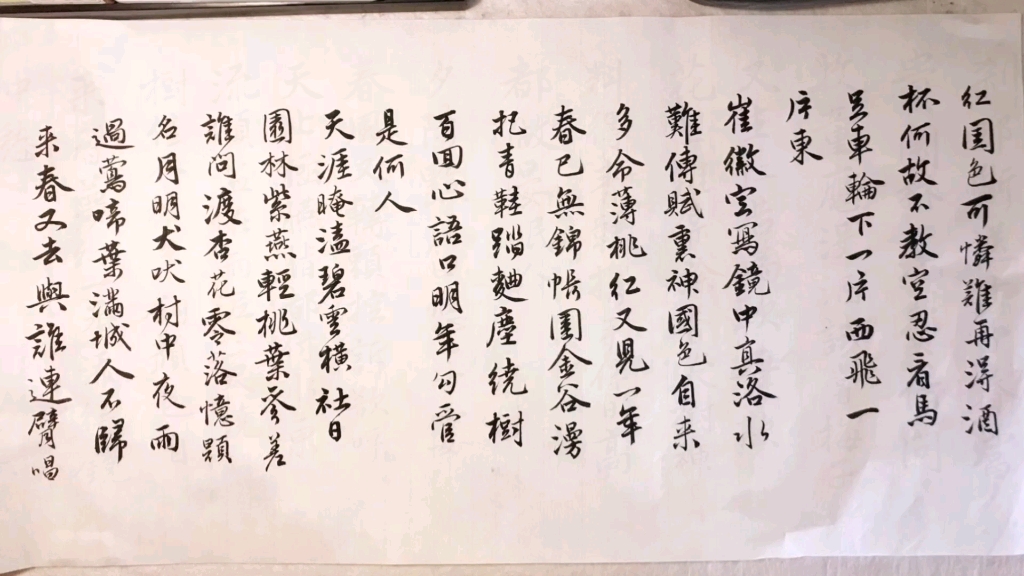 红国色可憐難再得酒
杯何故不教空忍看馬
足車輪下一片西飛一
片東
崔徽空寫鏡中真洛水
難傳賦裏神國色自来
多命薄桃红又見一年
春已無錦帳圍金谷漫
把青鞋蹋麯塵繞樹
百囬心語口明年勾管
是何人
天涯晻溘碧雲横社日
園林紫燕輕桃葉参差
誰问渡杏花零落憶題
名月明犬吠村中夜雨
過鶯啼葉滿城人不歸
来春又去與誰連臂唱